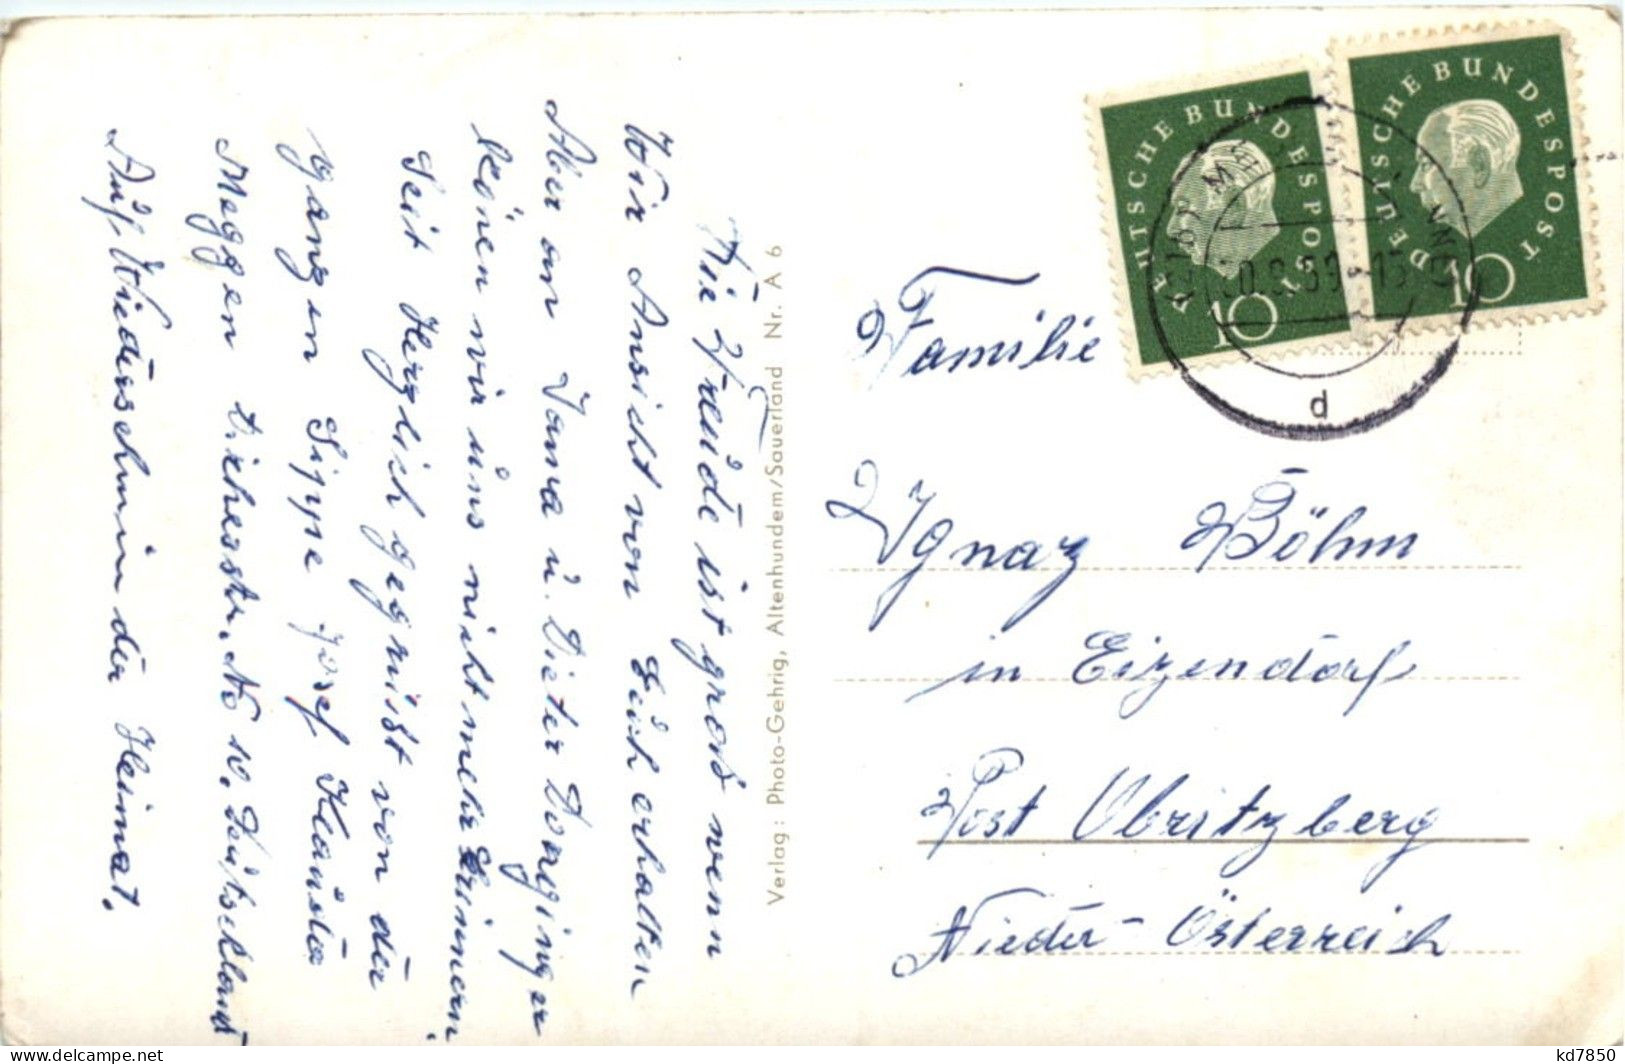 Die Freude ist groß wenn
Wir Ansicht von Euch erhalten
Aber an Jana u. Dieter
könen wir uns nicht mehr Erinnern
Seit Herzlich gegrüßt von der
ganzen Sippe Josef
Meggen No 10. Deutschland
Auf Wiedersehnin der Heimat.
Verlag: Photo-Gehrig, Altenhundem/Sauerland Nr. A 6
DEUTSCHE BUNDESPOST
10
DEUTSCHE BUNDESPOST
10
d
Familie
Ignaz Böhm
in Eizendorf
Post Obritzberg
Nieder-Österreich
kd7850